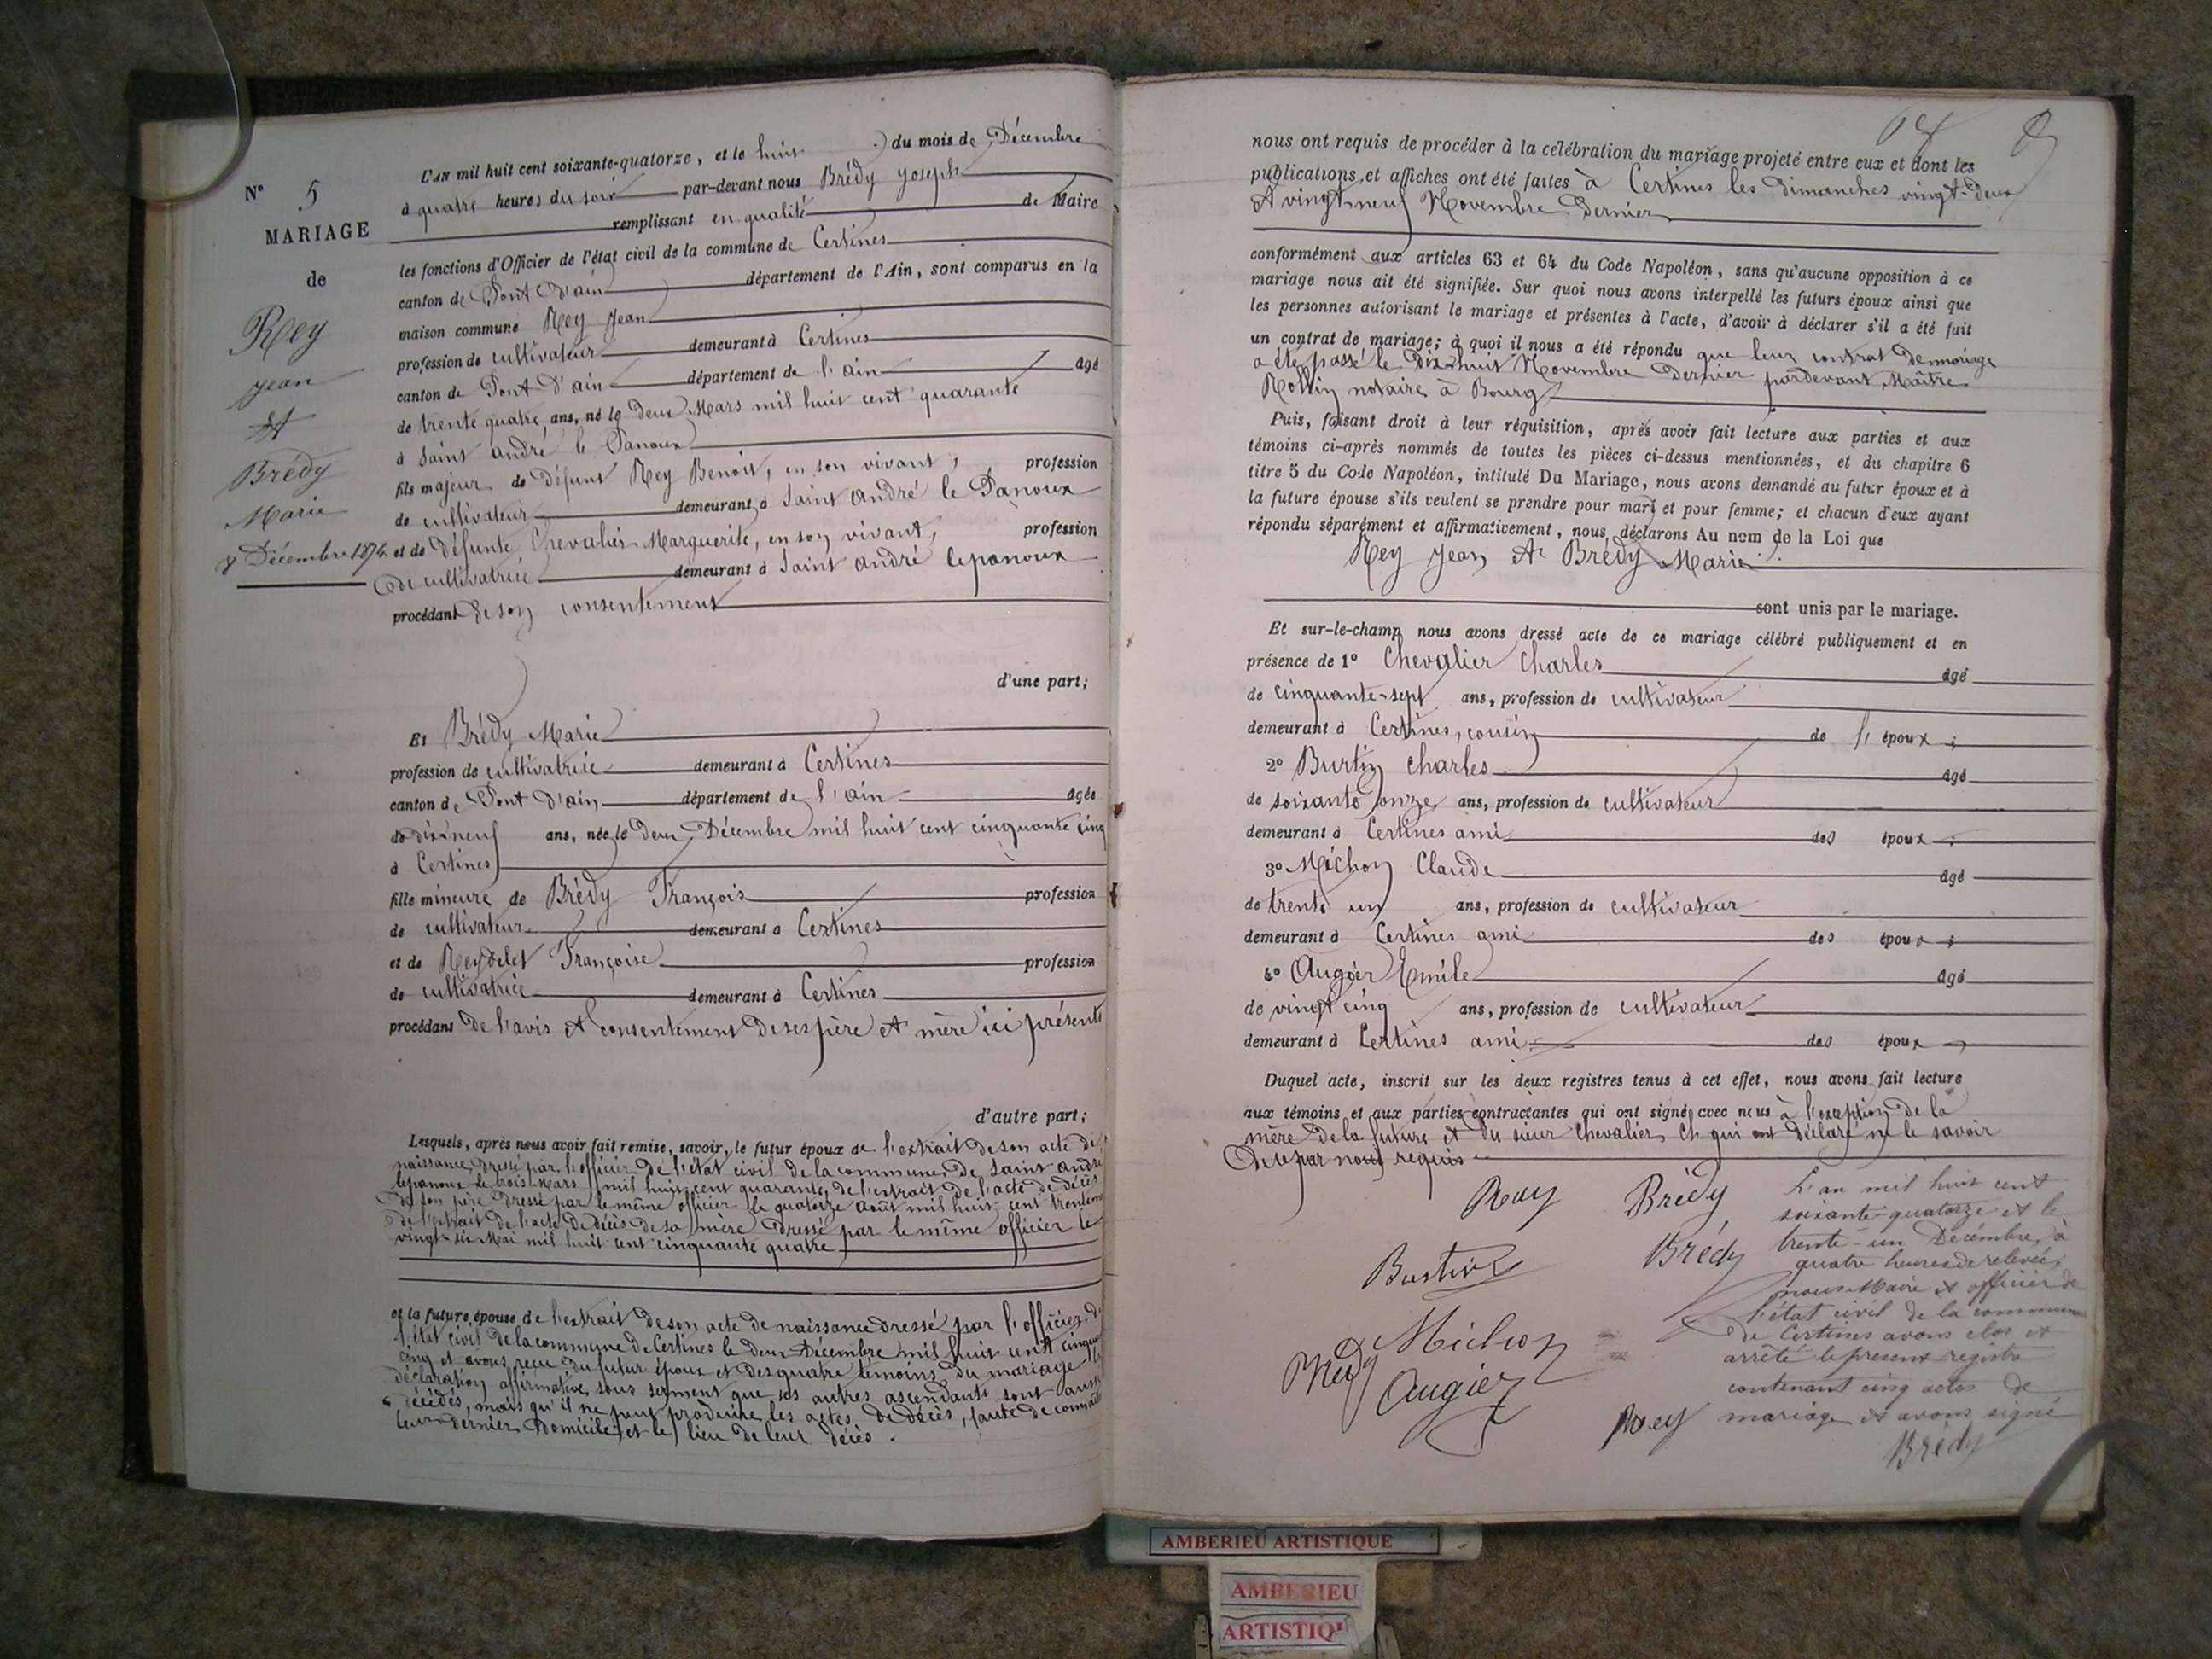 N° 5
MARIAGE
de
Rey
Jean
et
Brédy
Marie
8 Décembre 1874
L'AN mil huit cent soixante-quatorze, et le huit du mois de Décembre
à quatre heures du soir par-devant nous Brédy Joseph
remplissant en qualité de Maire
les fonctions d'Officier de l'état civil de la commune de Certines
canton de Pont d'ain département de l'Ain, sont comparus en la
maison commune Rey Jean
profession de cultivateur demeurant à Certines
canton de Pont d'ain département de l'ain âgé
de trente quatre ans, né le deux Mars mil huit cent quarante
à Saint André le Panoux
fils majeur de Défunt Rey Benoit, en son vivant, profession
de cultivateur demeurant à Saint André le Panoux
et de Défunte Chevalier Marguerite, en son vivant, profession
de cultivatrice demeurant à Saint André lepanoux
procédant de son consentement
d'une part;
Et Brédy Marie
profession de cultivatrice demeurant à Certines
canton de Pont d'ain département de l'ain âgée
de dix neuf ans, née le deux Décembre mil huit cent cinquante cinq
à Certines
fille mineure de Brédy François profession
de cultivateur demeurant à Certines
et de Reydelet Françoise profession
de cultivatrice demeurant à Certines
procédant de l'avis et consentement de ses père et mère ici présents
d'autre part;
Lesquels, après nous avoir fait remise, savoir, le futur époux de l'extrait de son acte de
naissance dressé par l'officier de l'état civil de la commune de Saint André
lepanoux le trois Mars mil huit cent quarante, de l'extrait de l'acte de décès
de son père dressé par le même officier le quatorze août mil huit cent
de l'extrait de l'acte de décès de sa mère dressé par le même officier le
vingt-six Mai mil huit cent cinquante quatre
et la future épouse de l'extrait de son acte de naissance dressé par l'officier de
l'état civil de la commune de Certines le deux Décembre mil huit cent cinquante
cinq et avons reçu du futur époux et des quatre témoins du mariage la
déclaration affirmative sous serment que ses autres ascendants sont aussi
décédés, mais qu'il ne peut produire les actes de décès, faute de connaître
leur dernier domicile et le lieu de leur décès.
nous ont requis de procéder à la célébration du mariage projeté entre eux et dont les
publications et affiches ont été faites à Certines les dimanches vingt-deux
et vingt neuf Novembre dernier
conformément aux articles 63 et 64 du Code Napoléon, sans qu'aucune opposition à ce
mariage nous ait été signifiée. Sur quoi nous avons interpellé les futurs époux ainsi que
les personnes autorisant le mariage et présentes à l'acte, d'avoir à déclarer s'il a été fait
un contrat de mariage; à quoi il nous a été répondu que leur contrat de mariage
a été passé le dix huit Novembre dernier pardevant Maître
notaire à Bourg
Puis, faisant droit à leur réquisition, après avoir fait lecture aux parties et aux
témoins ci-après nommés de toutes les pièces ci-dessus mentionnées, et du chapitre 6
titre 5 du Code Napoléon, intitulé Du Mariage, nous avons demandé au futur époux et à
la future épouse s'ils veulent se prendre pour mari et pour femme; et chacun d'eux ayant
répondu séparément et affirmativement, nous déclarons Au nom de la Loi que
Rey Jean et Brédy Marie
sont unis par le mariage.
Et sur-le-champ nous avons dressé acte de ce mariage célébré publiquement et en
présence de 1° Chevalier Charles âgé
de cinquante-sept ans, profession de cultivateur
demeurant à Certines, cousin de l'époux;
2° Burtin Charles âgé
de soixante onze ans, profession de cultivateur
demeurant à Certines ami des époux;
3° Michon Claude âgé
de trente un ans, profession de cultivateur
demeurant à Certines ami des époux;
4° Augier Emile âgé
de vingt cinq ans, profession de cultivateur
demeurant à Certines ami des époux
Duquel acte, inscrit sur les deux registres tenus à cet effet, nous avons fait lecture
aux témoins et aux parties contractantes qui ont signé avec nous à l'exception de la
mère de la future et du sieur Chevalier Ch qui ont déclaré ne le savoir
de par nous requis
Rey Brédy
Burtin Brédy
Michon
Brédy Augier
Rey
L'an mil huit cent
soixante-quatorze et le
trente-un Décembre, à
quatre heures de relevée,
nous Maire et officier de
l'état civil de la commune
de Certines avons clos et
arrêté le présent registre
contenant cinq actes de
mariage et avons signé
Brédy
AMBERIEU ARTISTIQUE
AMBERIEU
ARTISTIQ